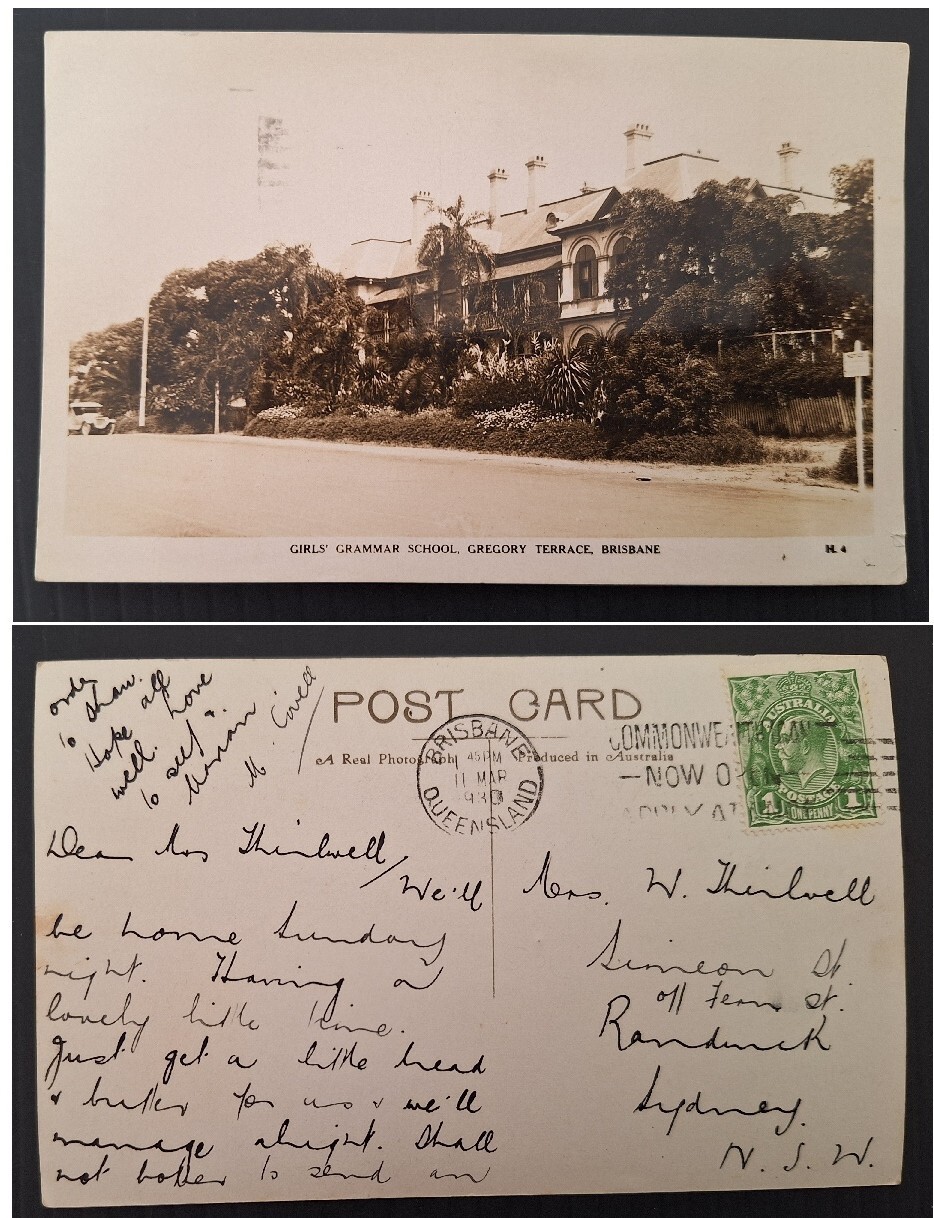 GIRLS' GRAMMAR SCHOOL, GREGORY TERRACE, BRISBANE
H. 4
POST CARD
A Real Photograph Produced in Australia
BRISBANE
1 45PM
11 MAR
193
QUEENSLAND
COMMONWEALTH
NOW
APPLY AT
AUSTRALIA
POSTAGE
1 1
ONE PENNY
Dear Mrs Thirlwell,
We'll
be home Sunday
night. Having a
lovely little time.
Just get a little bread
& butter for us & we'll
manage alright. Shall
not bother to send an
order
to Shaw.
Hope all
well. Love
to self &
Marian
M.
Mrs. W. Thirlwell
Simeon St.
off Fern St.
Randwick
Sydney.
N. S. W.